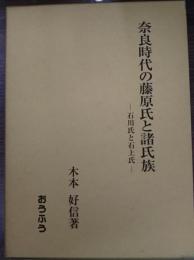 奈良時代の藤原氏と諸氏族
―石川氏と石上氏―
木本 好信 著
おうふう